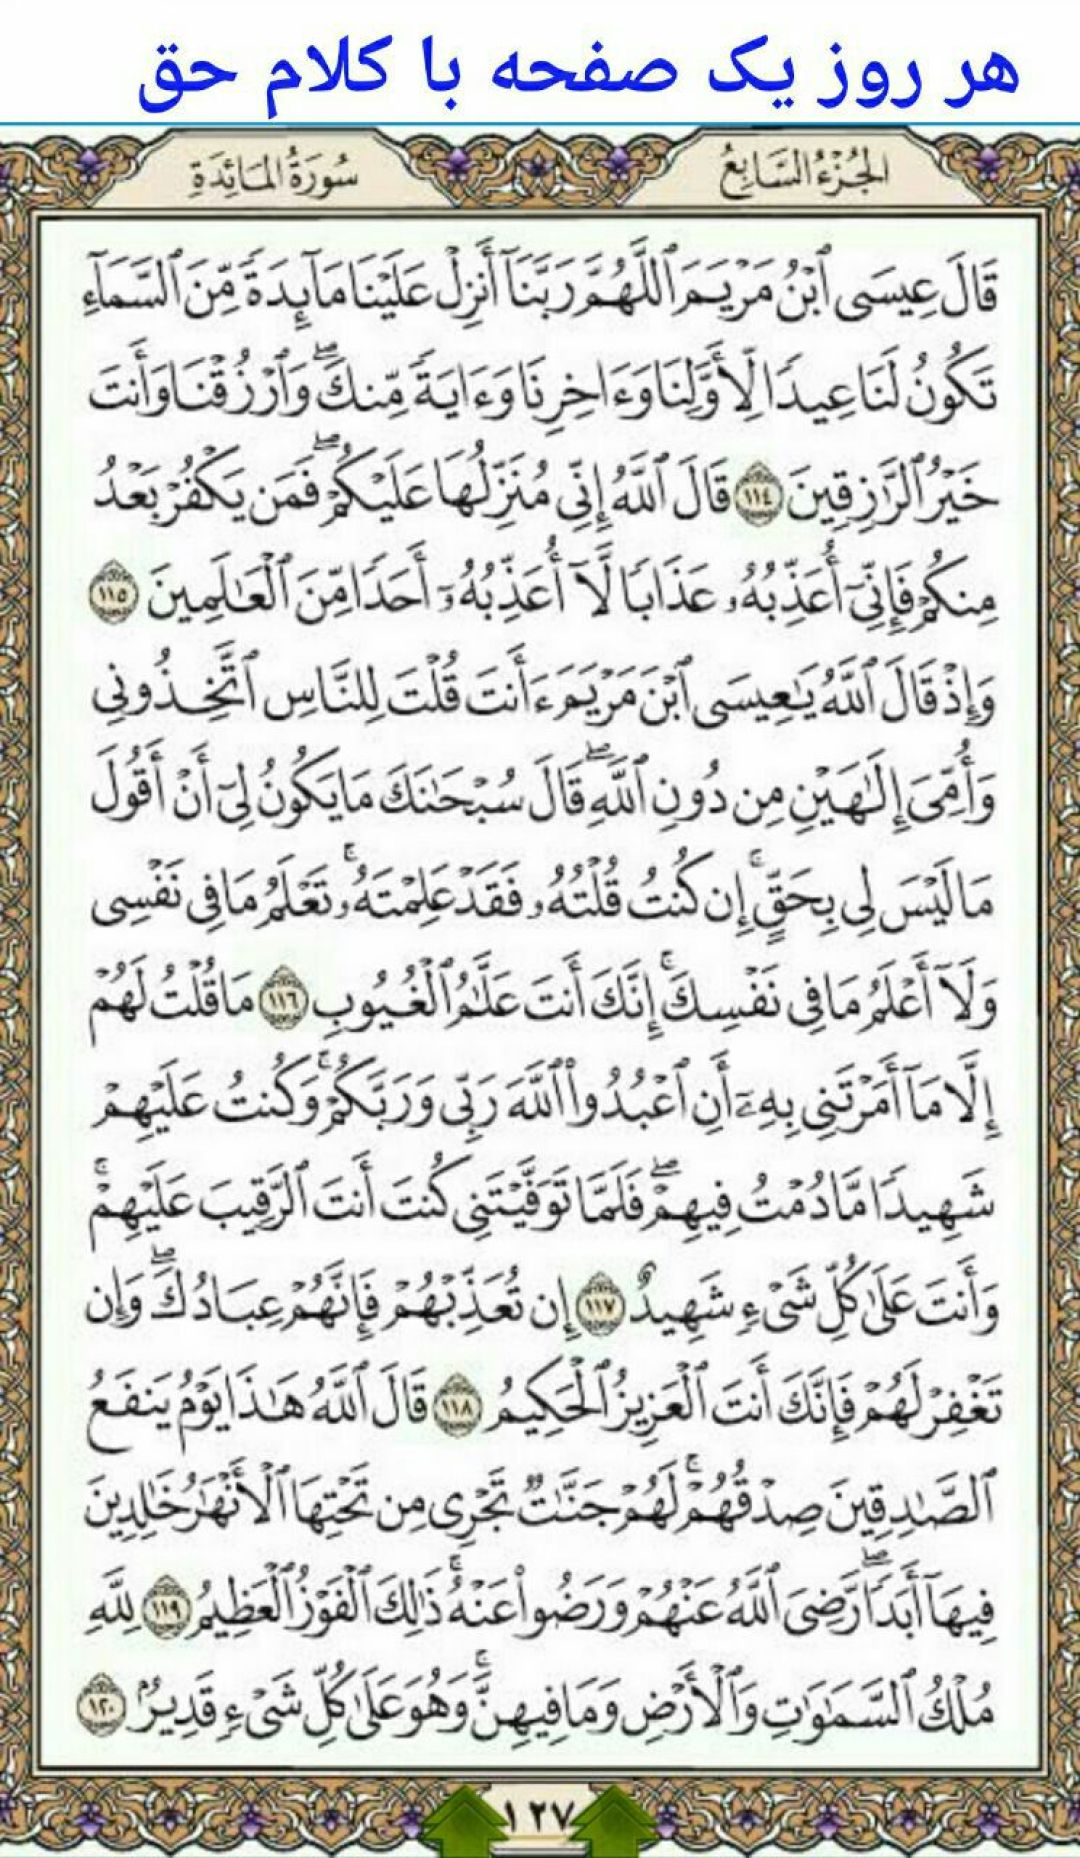 هر روز یک صفحه با کلام حق
الجُزْءُ السَّابِعُ
سُورَةُ المَائِدَةِ
قَالَ عِيسَى ٱبْنُ مَرْيَمَ ٱللَّهُمَّ رَبَّنَآ أَنزِلْ عَلَيْنَا مَآئِدَةً مِّنَ ٱلسَّمَآءِ
تَكُونُ لَنَا عِيدًا لِّأَوَّلِنَا وَءَاخِرِنَا وَءَايَةً مِّنكَ ۖ وَٱرْزُقْنَا وَأَنتَ
خَيْرُ ٱلرَّٰزِقِينَ ١١٤ قَالَ ٱللَّهُ إِنِّى مُنَزِّلُهَا عَلَيْكُمْ ۖ فَمَن يَكْفُرْ بَعْدُ
مِنكُمْ فَإِنِّىٓ أُعَذِّبُهُۥ عَذَابًا لَّآ أُعَذِّبُهُۥٓ أَحَدًا مِّنَ ٱلْعَٰلَمِينَ ١١٥
وَإِذْ قَالَ ٱللَّهُ يَٰعِيسَى ٱبْنَ مَرْيَمَ ءَأَنتَ قُلْتَ لِلنَّاسِ ٱتَّخِذُونِى
وَأُمِّىَ إِلَٰهَيْنِ مِن دُونِ ٱللَّهِ ۖ قَالَ سُبْحَٰنَكَ مَا يَكُونُ لِىٓ أَنْ أَقُولَ
مَا لَيْسَ لِى بِحَقٍّ ۚ إِن كُنتُ قُلْتُهُۥ فَقَدْ عَلِمْتَهُۥ ۚ تَعْلَمُ مَا فِى نَفْسِى
وَلَآ أَعْلَمُ مَا فِى نَفْسِكَ ۚ إِنَّكَ أَنتَ عَلَّٰمُ ٱلْغُيُوبِ ١١٦ مَا قُلْتُ لَهُمْ
إِلَّا مَآ أَمَرْتَنِى بِهِۦٓ أَنِ ٱعْبُدُوا۟ ٱللَّهَ رَبِّى وَرَبَّكُمْ ۚ وَكُنتُ عَلَيْهِمْ
شَهِيدًا مَّا دُمْتُ فِيهِمْ ۖ فَلَمَّا تَوَفَّيْتَنِى كُنتَ أَنتَ ٱلرَّقِيبَ عَلَيْهِمْ ۚ
وَأَنتَ عَلَىٰ كُلِّ شَىْءٍ شَهِيدٌ ١١٧ إِن تُعَذِّبْهُمْ فَإِنَّهُمْ عِبَادُكَ ۖ وَإِن
تَغْفِرْ لَهُمْ فَإِنَّكَ أَنتَ ٱلْعَزِيزُ ٱلْحَكِيمُ ١١٨ قَالَ ٱللَّهُ هَٰذَا يَوْمُ يَنفَعُ
ٱلصَّٰدِقِينَ صِدْقُهُمْ ۚ لَهُمْ جَنَّٰتٌ تَجْرِى مِن تَحْتِهَا ٱلْأَنْهَٰرُ خَٰلِدِينَ
فِيهَآ أَبَدًا ۖ رَّضِىَ ٱللَّهُ عَنْهُمْ وَرَضُوا۟ عَنْهُ ۚ ذَٰلِكَ ٱلْفَوْزُ ٱلْعَظِيمُ ١١٩ لِلَّهِ
مُلْكُ ٱلسَّمَٰوَٰتِ وَٱلْأَرْضِ وَمَا فِيهِنَّ ۚ وَهُوَ عَلَىٰ كُلِّ شَىْءٍ قَدِيرٌۢ ١٢٠
١٢٧